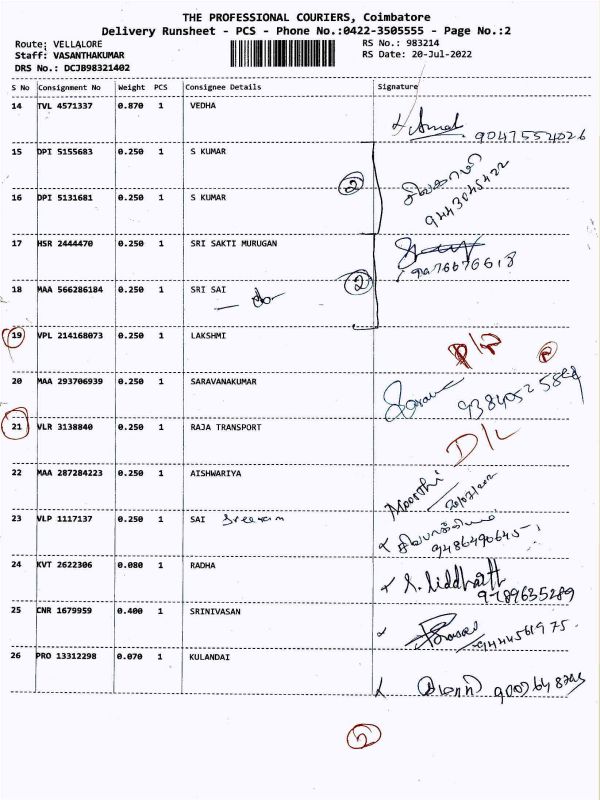 THE PROFESSIONAL COURIERS, Coimbatore
Delivery Runsheet - PCS - Phone No.:0422-3505555 - Page No.:2
Route: VELLALORE RS No.: 983214
Staff: VASANTHAKUMAR RS Date: 20-Jul-2022
DRS No.: DCJB98321402
S No Consignment No Weight PCS Consignee Details Signature
14 TVL 4571337 0.870 1 VEDHA
9047554026
15 DPI 5155683 0.250 1 S KUMAR
2 சிவகாமி
9443045422
16 DPI 5131681 0.250 1 S KUMAR
17 HSR 2444470 0.250 1 SRI SAKTI MURUGAN
18 MAA 566286184 0.250 1 SRI SAI 2
19 VPL 214168073 0.250 1 LAKSHMI
20 MAA 293706939 0.250 1 SARAVANAKUMAR
21 VLR 3138840 0.250 1 RAJA TRANSPORT D/L
22 MAA 287284223 0.250 1 AISHWARIYA Moorthi
23 VLP 1117137 0.250 1 SAI Sreeram
9486490645
24 KVT 2622306 0.080 1 RADHA S. Siddharth
9789635289
25 CNR 1679959 0.400 1 SRINIVASAN
9444561975.
26 PRO 13312298 0.070 1 KULANDAI
2